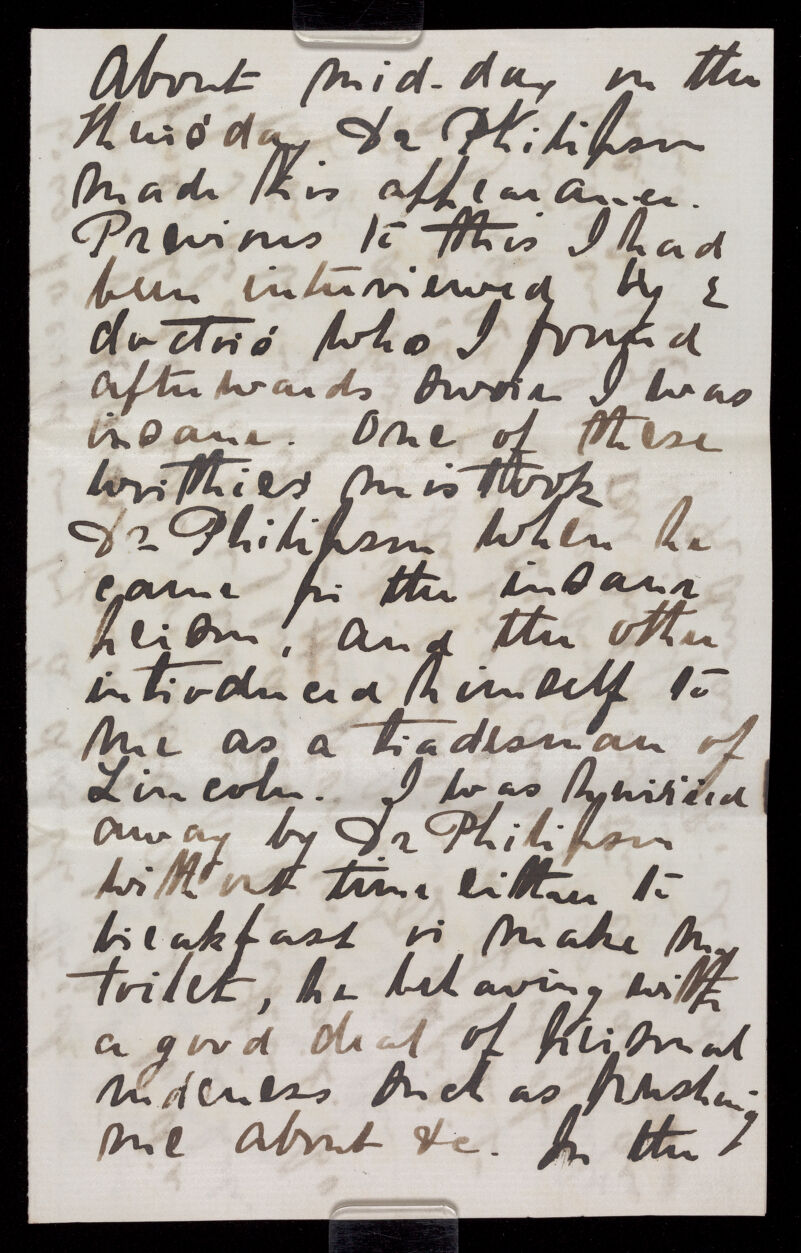 About mid-day on the
thursday Dr Philipson
made his appearance.
Previous to this I had
been interviewed by 2
doctors who I found
afterwards swore I was
insane. One of these
worthies mistook
Dr Philipson when he
came for the insane
person, and the other
introduced himself to
me as a tradesman of
Lincoln. I was hurried
away by Dr Philipson
without time either to
breakfast or make my
toilet, he behaving with
a good deal of personal
rudeness such as pushing
me about &c. In the